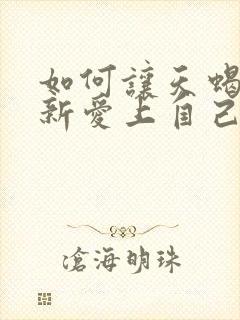 如何讓天蝎
新愛上自己
滄海明珠